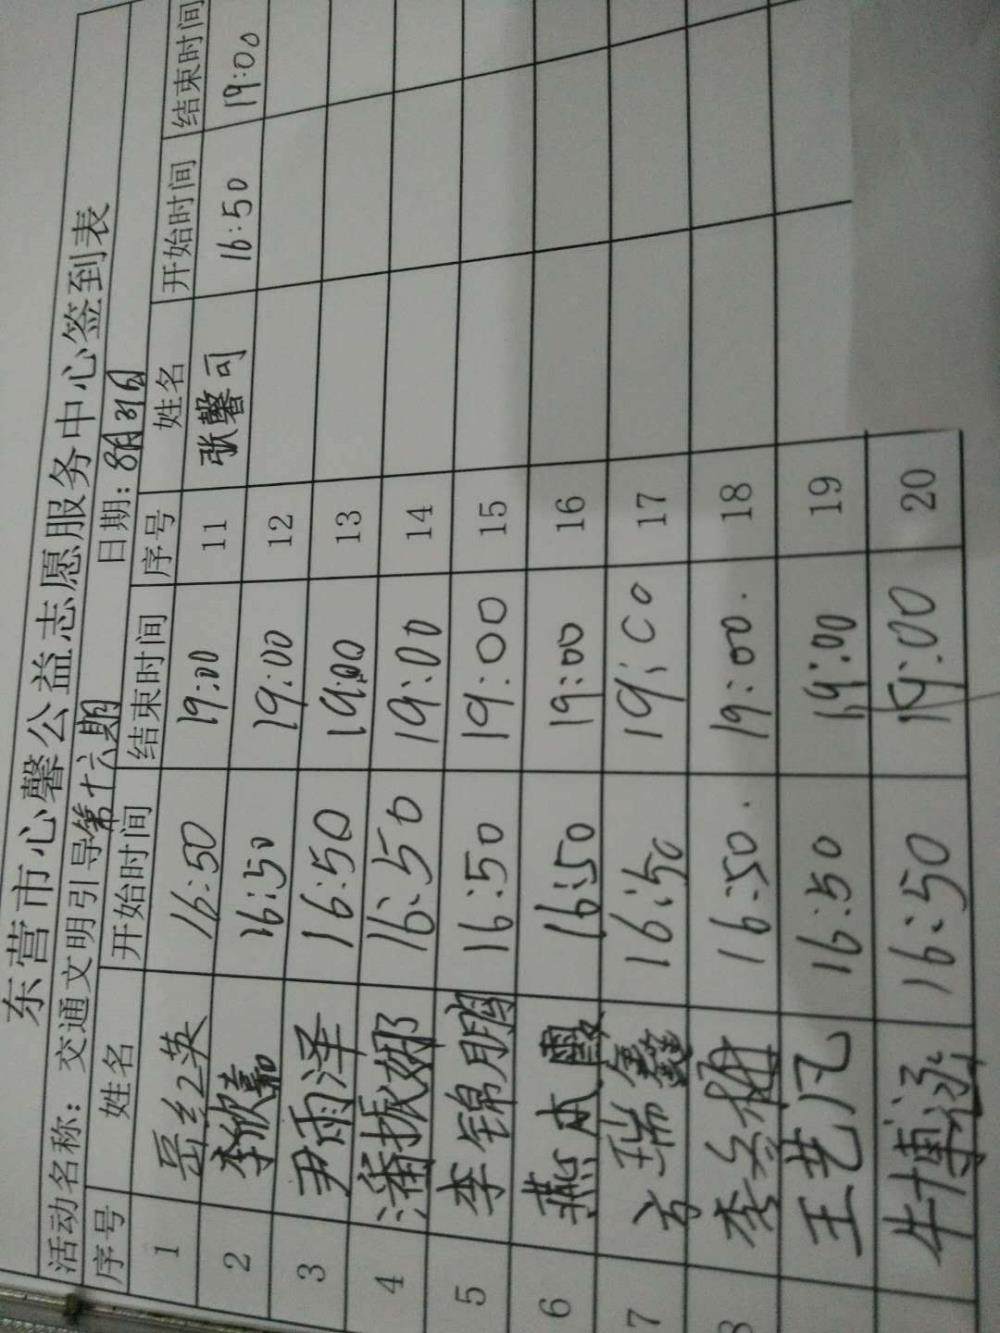 东营市心馨公益志愿服务中心签到表
活动名称：交通文明引导第十六期 日期：8月31日
序号 姓名 开始时间 结束时间 序号 姓名 开始时间 结束时间
1 岳红英 16:50 19:00 11 张馨可 16:50 19:00
2 李欣嘉 16:50 19:00 12
3 尹雨泽 16:50 19:00 13
4 潘振娜 16:50 19:00 14
5 李锦鹏 16:50 19:00 15
6 燕本霞 16:50 19:00 16
7 方瑞鑫 16:50 19:00 17
8 李 16:50. 19:00. 18
王艺凡 16:50 19:00 19
牛博泓 16:50 19:00 20